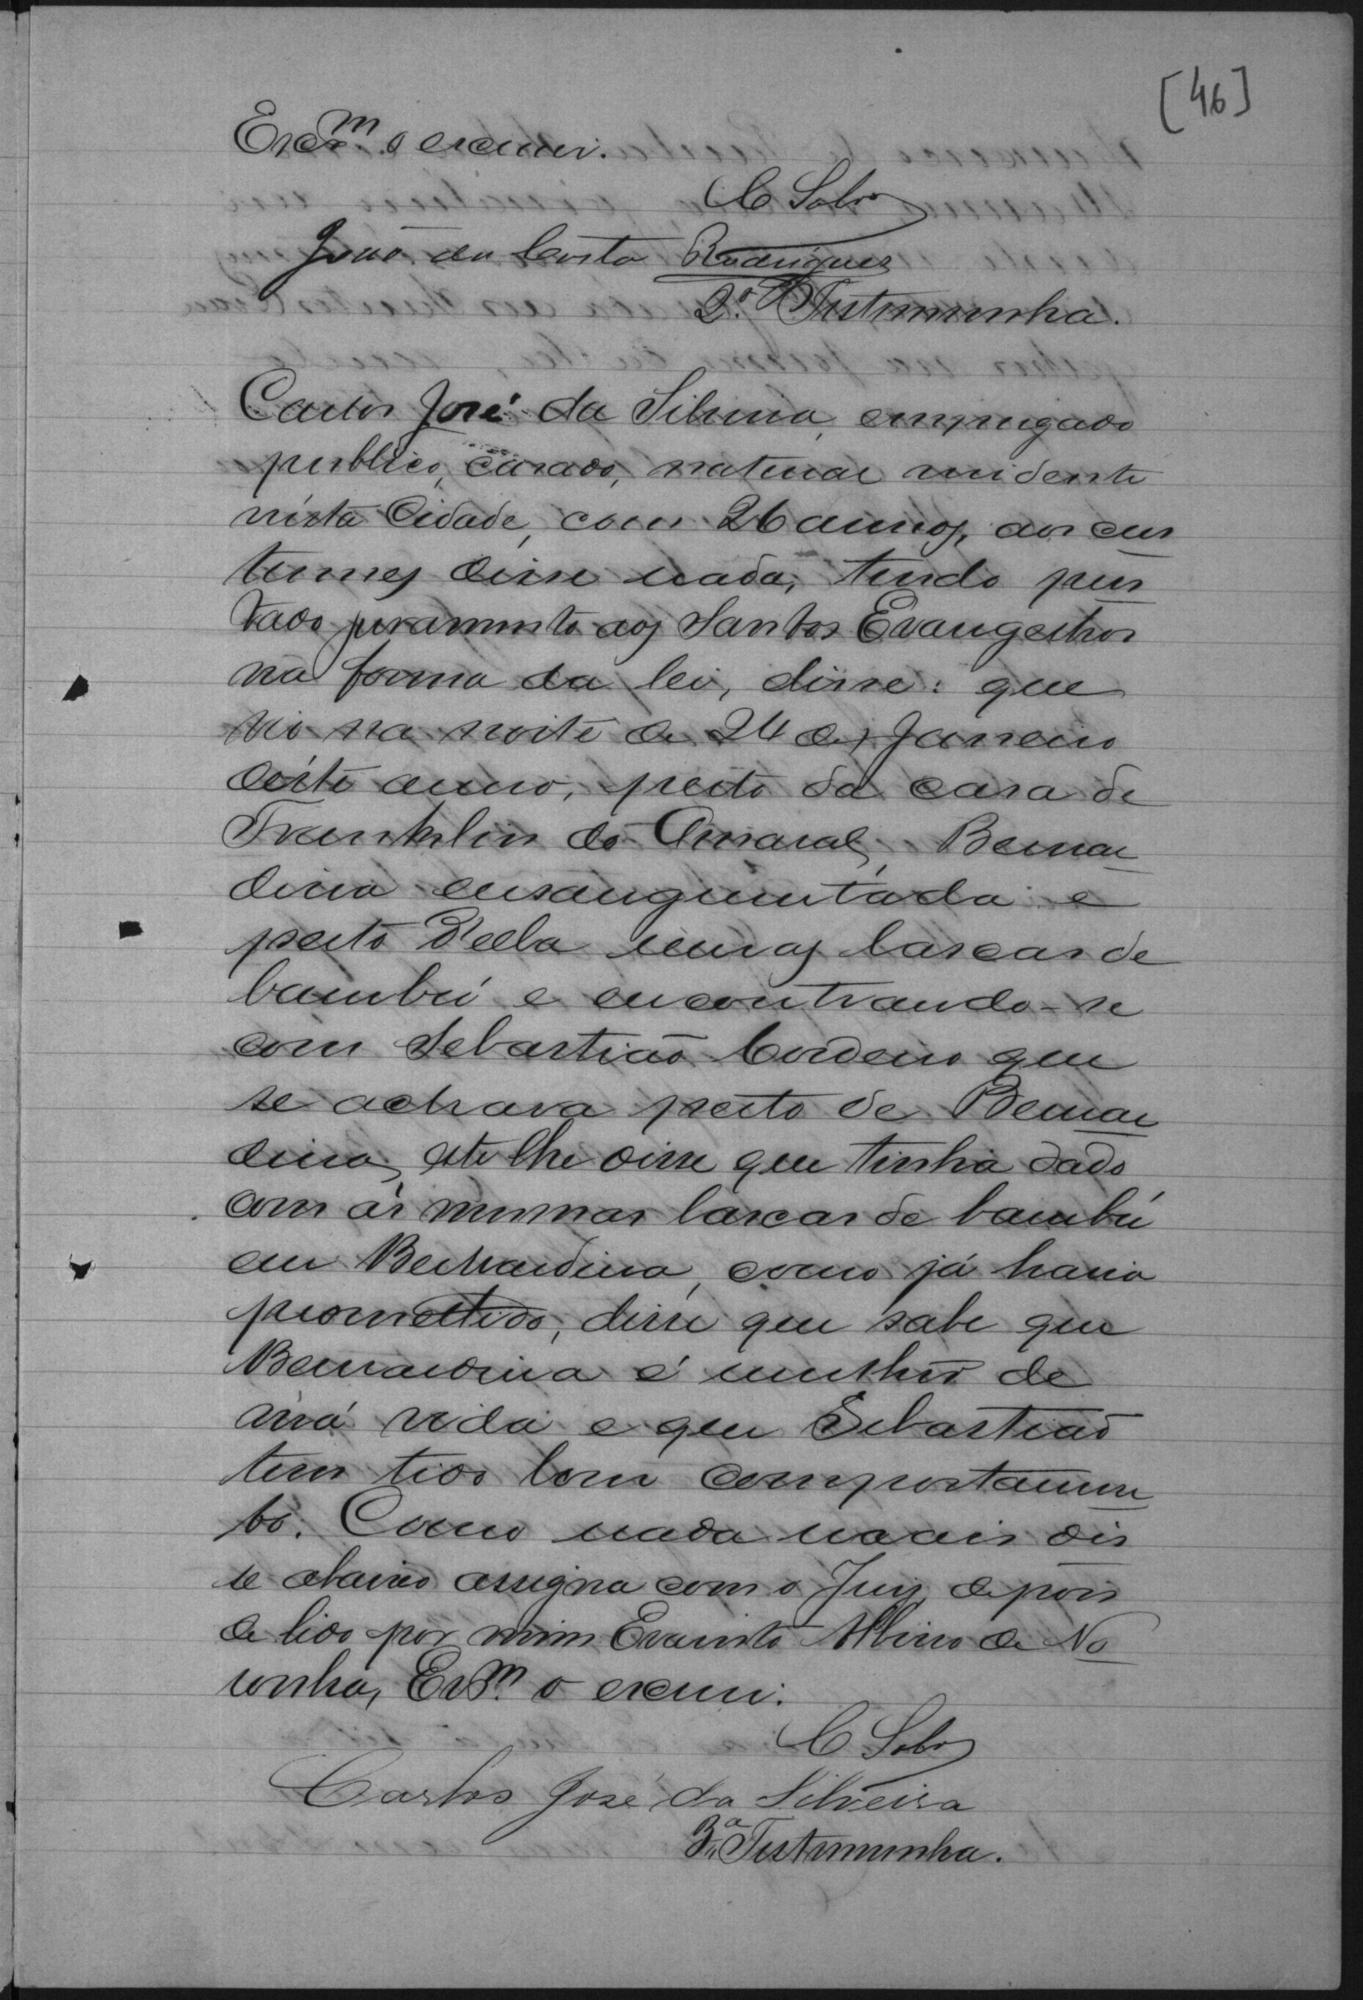 [46]
Escr.m o escrevi.
C Sobro
João da Costa Rodrigues
2.ª Testemunha.
Carlos José da Silveira, empregado
publico, casado, natural residente
nésta Cidade, com 26 annos, aos cus
tumes disse nada, tendo pres
tado juramento aos Santos Evangelhos
na forma da lei, disse: que
vio na noite de 24 de Janeiro
déste anno, perto da casa de
Franklin do Amaral, Bernar
dina ensanguentada e
perto d'ella umas lascas de
bambú e encontrando-se
com Sebastião Cordeiro que
se achava perto de Bernar
dina, este lhe disse que tinha dado
com as mesmas lascas de bambú
em Bernardina, como já havia
promettido, disse que sabe que
Bernardina é mulher de
má vida e que Sebastião
tem tido bom comportamen
to. Como nada mais dis
se abaixo assigna com o Juiz depois
de lido por mim Evaristo Albino de No
ronha, Escr.m o escrevi.
C Sobro
Carlos José da Silveira
3.ª Testemunha.